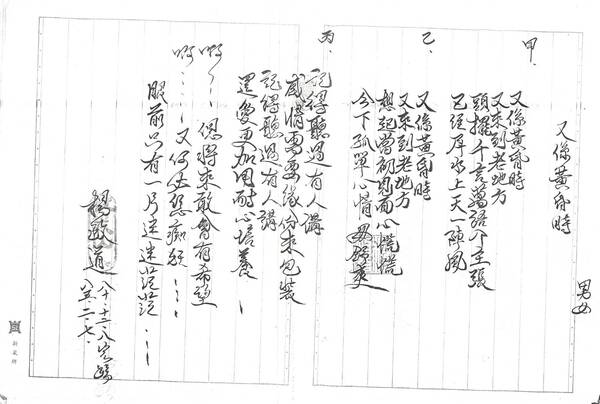 又係黃昏時
男女
甲.
又係黃昏時
又來到老地方
頭擺千言萬語个主張
已經 水上天一陣風
乙.
又係黃昏時
又來到老地方
想起當初見面心慌慌
今下孤單心情 爽
丙.
記得聽過有人講
感情需要緣份來包裝
記得聽過有人講
還愛更加用耐心培養
啊~ 將來敢會有希望
啊……又何必 痴
眼前只有一片迷迷茫茫……
楊政道
八十.十二.八完稿
二.七.